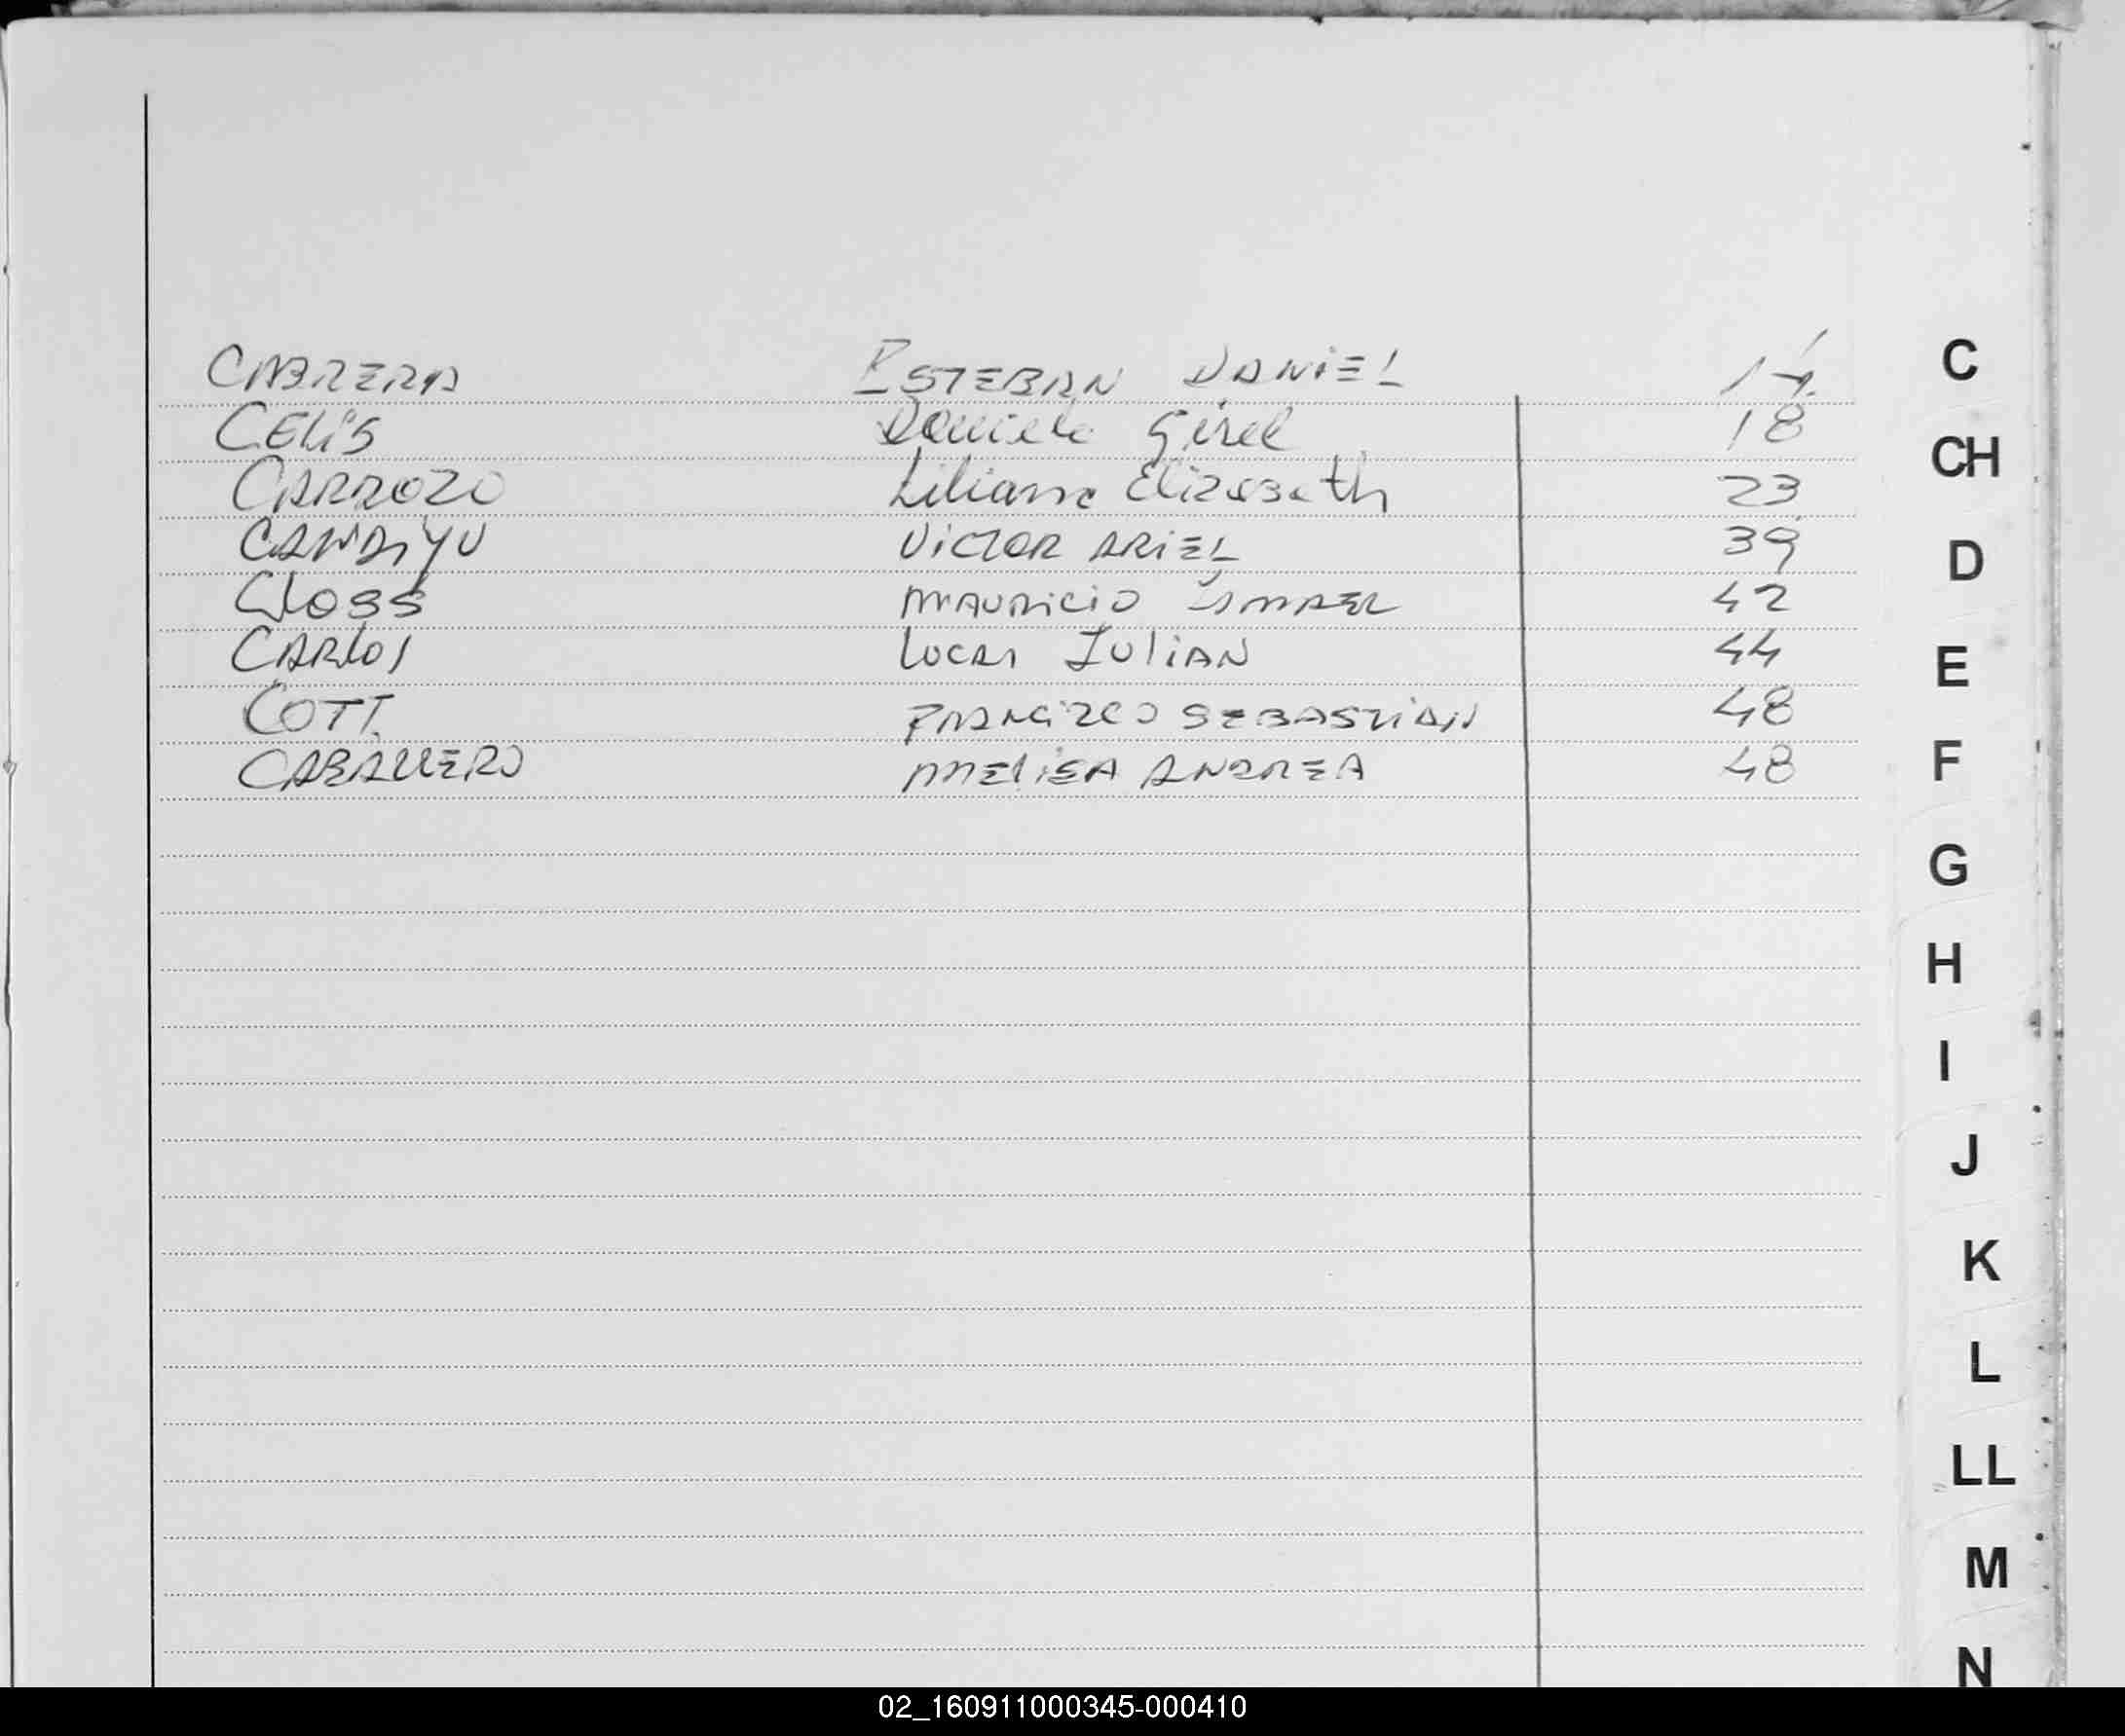 CABRERA ESTEBAN DANIEL 17
CELIS Daniela Gisel 18
CARROZO Liliana Elizabeth 23
CANDIYU VICTOR ARIEL 39
Closs MAURICIO ISMAEL 42
CARLOS LUCAS JULIAN 44
COTT FRANCISCO SEBASTIAN 48
CABALLERO MELISA ANDREA 48
C
CH
D
E
F
G
H
I
J
K
L
LL
M
N
02_160911000345-000410